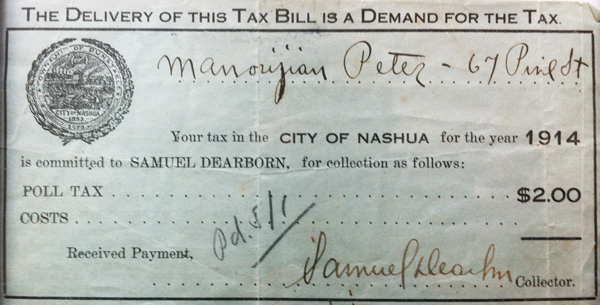 THE DELIVERY OF THIS TAX BILL IS A DEMAND FOR THE TAX.
Manoogian Peter - 67 Pine St
CITY OF NASHUA
1853
Your tax in the CITY OF NASHUA for the year 1914
is committed to SAMUEL DEARBORN, for collection as follows:
POLL TAX . . . . . . . . . . . . . . . . . . . . . . . . . . $2.00
COSTS . . . . . . . . . . . . . . . . . . . . . . . . . . . .
Pd. 5/1
Received Payment,
Samuel Dearborn Collector.